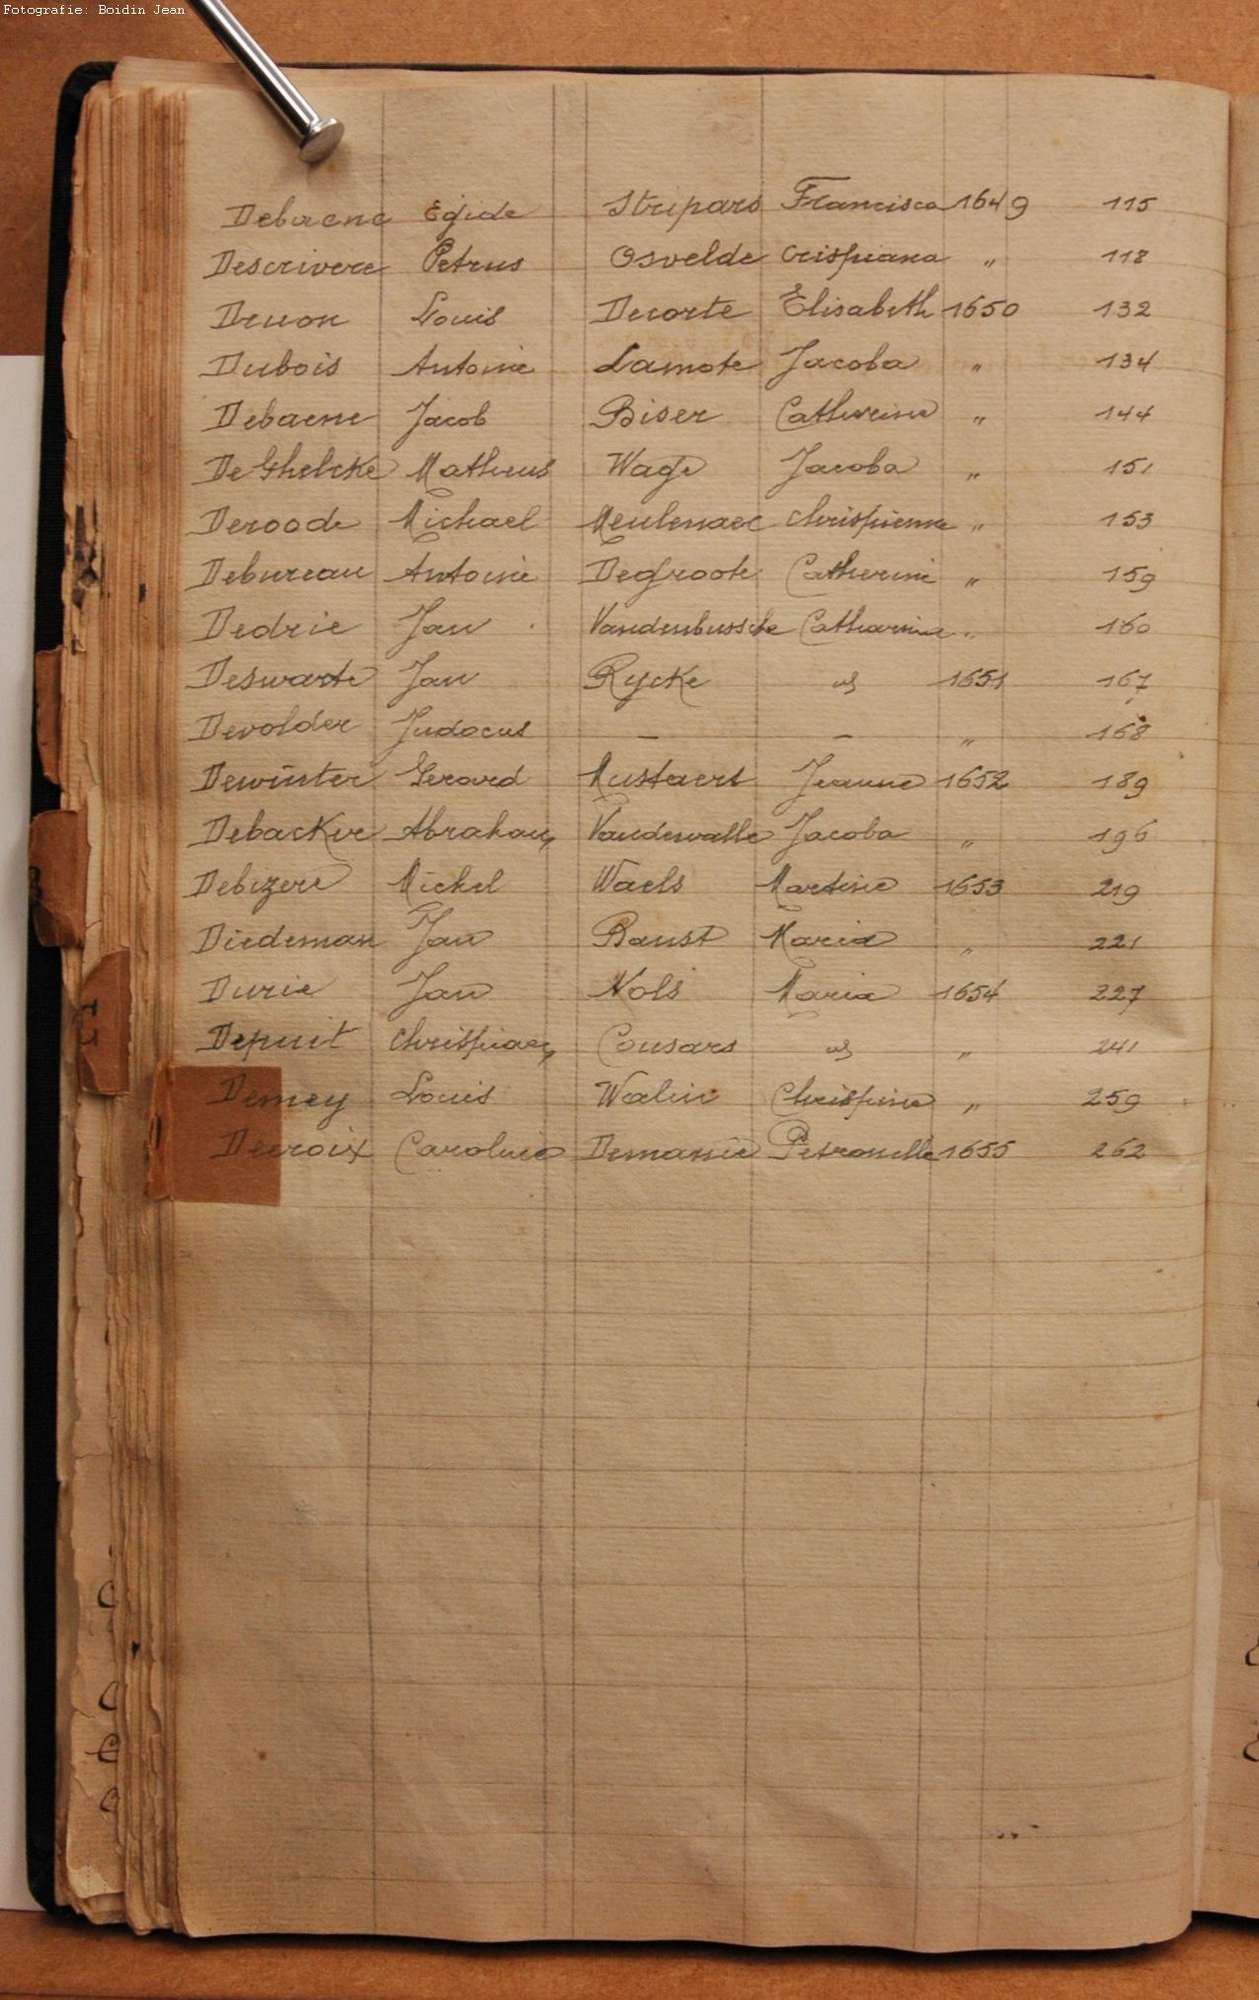 Fotografie: Boidin Jean
Debaene Egide Stripars Francisca 1649 115
Descrivere Petrus Osvelde Crispiana " 118
Druon Louis Decorte Elisabeth 1650 132
Dubois Antoine Lamote Jacoba " 134
Debaene Jacob Biser Catherine " 144
De Ghelcke Matheus Wage Jacoba " 151
Deroode Michael Meulenaec Chrispienne " 153
Debureau Antoine Degroote Catherine " 159
Dedrie Jan Vandenbussche Catharine " 160
Deswarte Jan Rycke id 1651 167
Devolder Judocus — — " 168
Dewinter Gerard Mustaert Jeanne 1652 189
Debackre Abraham Vandewalle Jacoba " 196
Debezere Michel Waels Martine 1653 219
Diedeman Jan Baust Maria " 221
Durie Jan Nols Maria 1654 227
Depuit Chrispiaen Cousars id " 241
Demey Louis Walin Chrispine " 259
Decroix Caroline Demarie Petronelle 1655 262